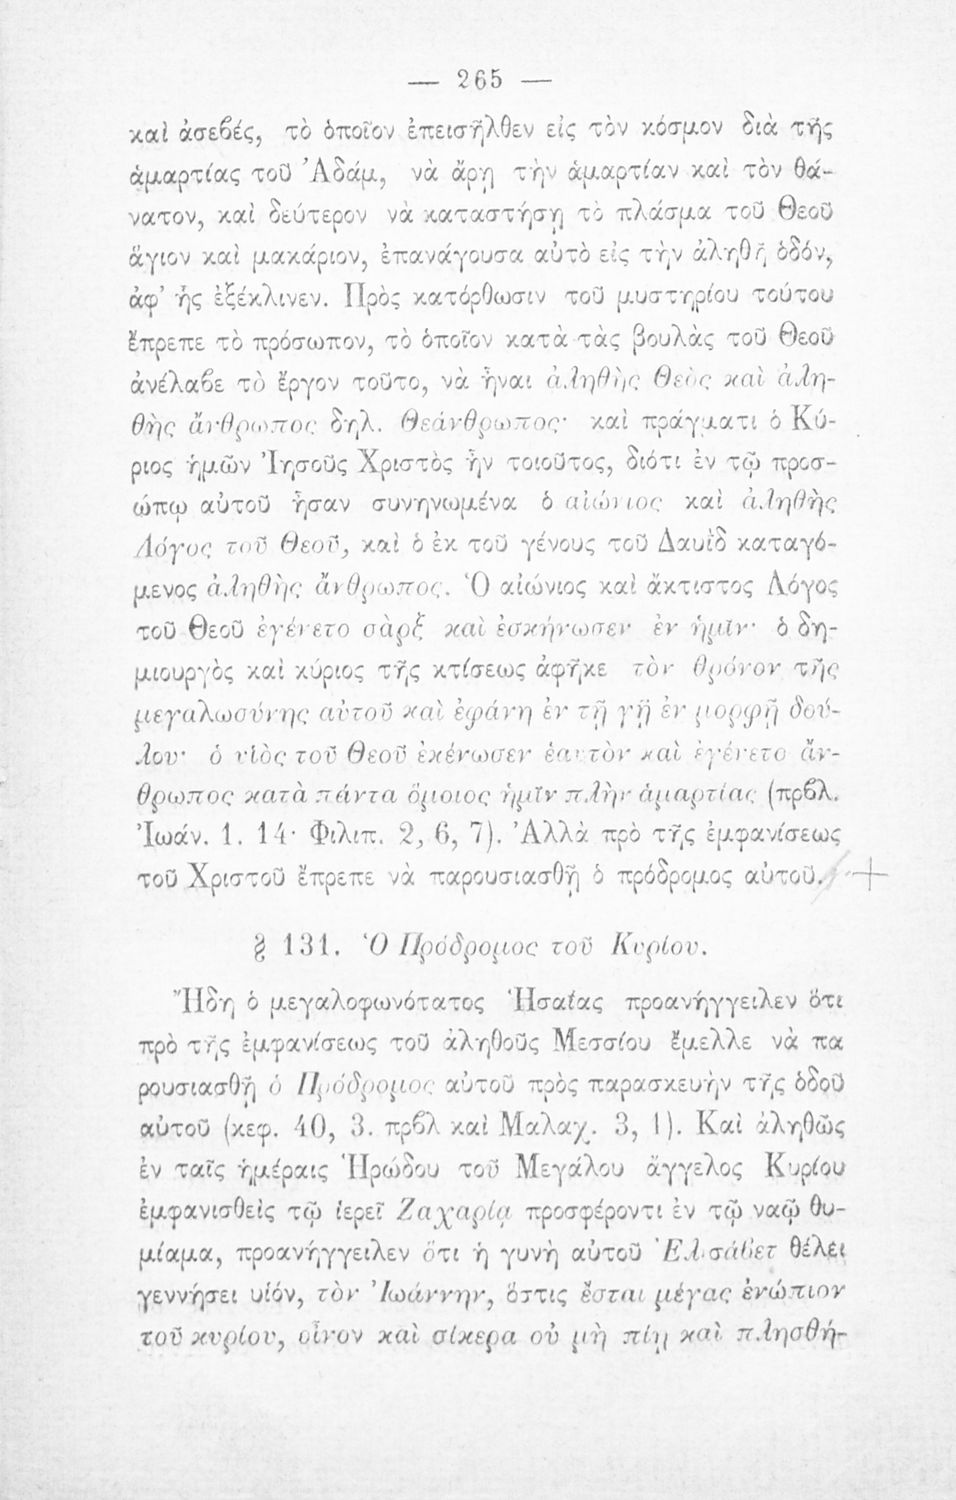 — 265 —
καὶ ἀσεβές, τὸ ὁποῖον ἐπεισῆλθεν εἰς τὸν κόσμον διὰ τῆς
ἁμαρτίας τοῦ Ἀδάμ, νὰ ἄρῃ τὴν ἁμαρτίαν καὶ τὸν θά-
νατον, καὶ δεύτερον νὰ καταστήσῃ τὸ πλάσμα τοῦ Θεοῦ
ἅγιον καὶ μακάριον, ἐπανάγουσα αὐτὸ εἰς τὴν ἀληθῆ ὁδόν,
ἀφ' ἧς ἐξέκλινεν. Πρὸς κατόρθωσιν τοῦ μυστηρίου τούτου
ἔπρεπε τὸ πρόσωπον, τὸ ὁποῖον κατὰ τὰς βουλὰς τοῦ Θεοῦ
ἀνέλαβε τὸ ἔργον τοῦτο, νὰ ἦναι ἀληθὴς Θεὸς καὶ ἀλη-
θὴς ἄνθρωπος δηλ. Θεάνθρωπος· καὶ πράγματι ὁ Κύ-
ριος ἡμῶν Ἰησοῦς Χριστὸς ἦν τοιοῦτος, διότι ἐν τῷ προσ-
ώπῳ αὐτοῦ ἦσαν συνηνωμένα ὁ αἰώνιος καὶ ἀληθὴς
Λόγος τοῦ Θεοῦ, καὶ ὁ ἐκ τοῦ γένους τοῦ Δαυῒδ καταγό-
μενος ἀληθὴς ἄνθρωπος. Ὁ αἰώνιος καὶ ἄκτιστος Λόγος
τοῦ Θεοῦ ἐγένετο σὰρξ καὶ ἐσκήνωσεν ἐν ἡμῖν· ὁ δη-
μιουργὸς καὶ κύριος τῆς κτίσεως ἀφῆκε τὸν θρόνον τῆς
μεγαλωσύνης αὐτοῦ καὶ ἐφάνη ἐν τῇ γῇ ἐν μορφῇ δού-
λου· ὁ υἱὸς τοῦ Θεοῦ ἐκένωσεν ἑαυτὸν καὶ ἐγένετο ἄν-
θρωπος κατὰ πάντα ὅμοιος ἡμῖν πλὴν ἁμαρτίας (πρβλ.
Ἰωάν. 1. 14· Φιλιπ. 2, 6, 7). Ἀλλὰ πρὸ τῆς ἐμφανίσεως
τοῦ Χριστοῦ ἔπρεπε νὰ παρουσιασθῇ ὁ πρόδρομος αὐτοῦ.
§ 131. Ὁ Πρόδρομος τοῦ Κυρίου.
Ἤδη ὁ μεγαλοφωνότατος Ἡσαΐας προανήγγειλεν ὅτι
πρὸ τῆς ἐμφανίσεως τοῦ ἀληθοῦς Μεσσίου ἔμελλε νὰ πα
ρουσιασθῇ ὁ Πρόδρομος αὐτοῦ πρὸς παρασκευὴν τῆς ὁδοῦ
αὐτοῦ (κεφ. 40, 3. πρβλ καὶ Μαλαχ. 3, 1). Καὶ ἀληθῶς
ἐν ταῖς ἡμέραις Ἡρώδου τοῦ Μεγάλου ἄγγελος Κυρίου
ἐμφανισθεὶς τῷ ἱερεῖ Ζαχαρίᾳ προσφέροντι ἐν τῷ ναῷ θυ-
μίαμα, προανήγγειλεν ὅτι ἡ γυνὴ αὐτοῦ Ἐλισάβετ θέλει
γεννήσει υἱόν, τὸν Ἰωάννην, ὅστις ἔσται μέγας ἐνώπιον
τοῦ κυρίου, οἶνον καὶ σίκερα οὐ μὴ πίῃ καὶ πλησθή-